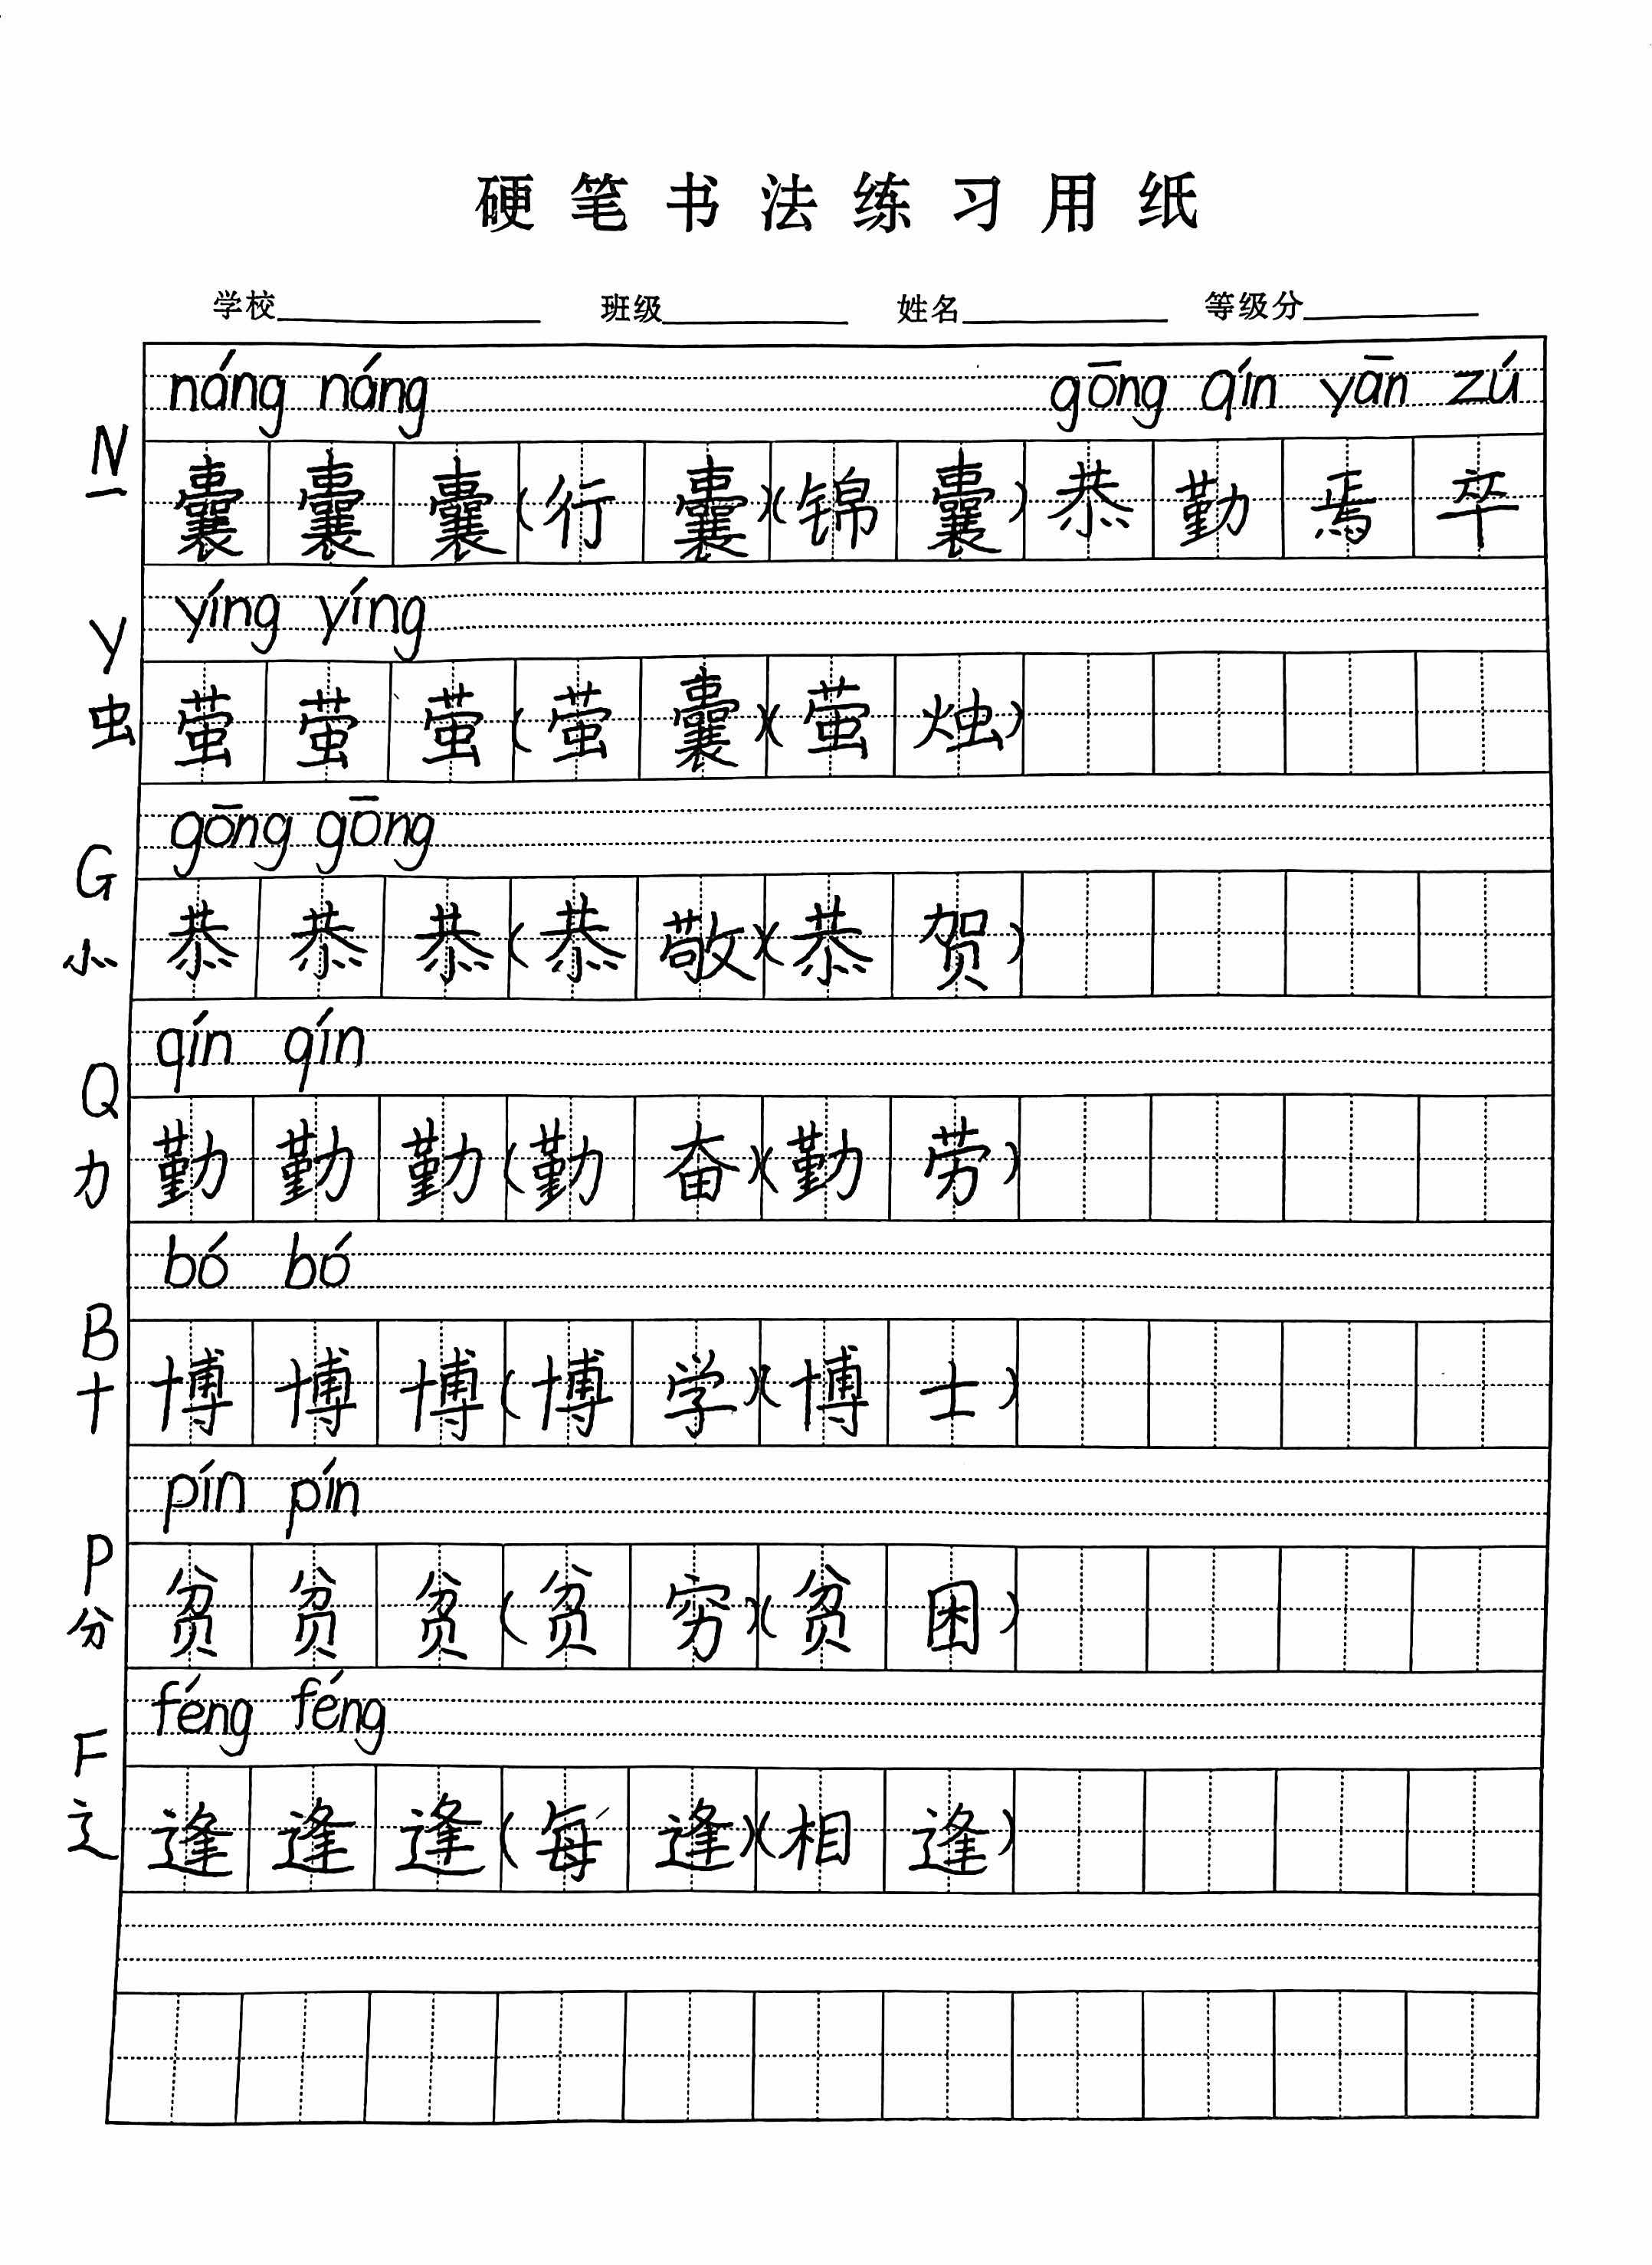 硬笔书法练习用纸
学校 班级 姓名 等级分
náng náng gōng qín yān zú
N
一
囊囊囊(行囊)(锦囊)恭勤焉卒
yíng yíng
Y
虫
萤萤萤(萤囊)(萤烛)
gōng gōng
G
㣺
恭恭恭(恭敬)(恭贺)
qín qín
Q
力
勤勤勤(勤奋)(勤劳)
bó bó
B
十
博博博(博学)(博士)
pín pín
P
分
贫贫贫(贫穷)(贫困)
féng féng
F
辶
逢逢逢(每逢)(相逢)